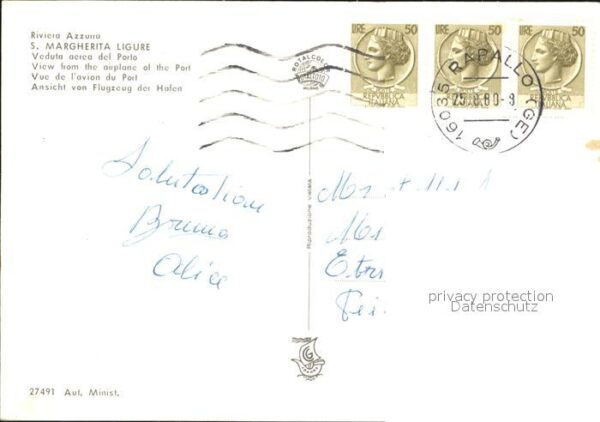 Riviera Azzurra
S. MARGHERITA LIGURE
Veduta aerea del Porto
View from the airplane of the Port
Vue de l'avion du Port
Ansicht von Flugzeug der Hafen
LIRE 50
REPUBBLICA ITALIANA
LIRE 50
REPUBBLICA ITALIANA
LIRE 50
REPUBBLICA ITALIANA
16035 RAPALLO (GE)
ROTALCOLOR
MILANO
Salutations
Bruno
Alice
Riproduzione vietata
privacy protection
Datenschutz
27491 Aut. Minist.